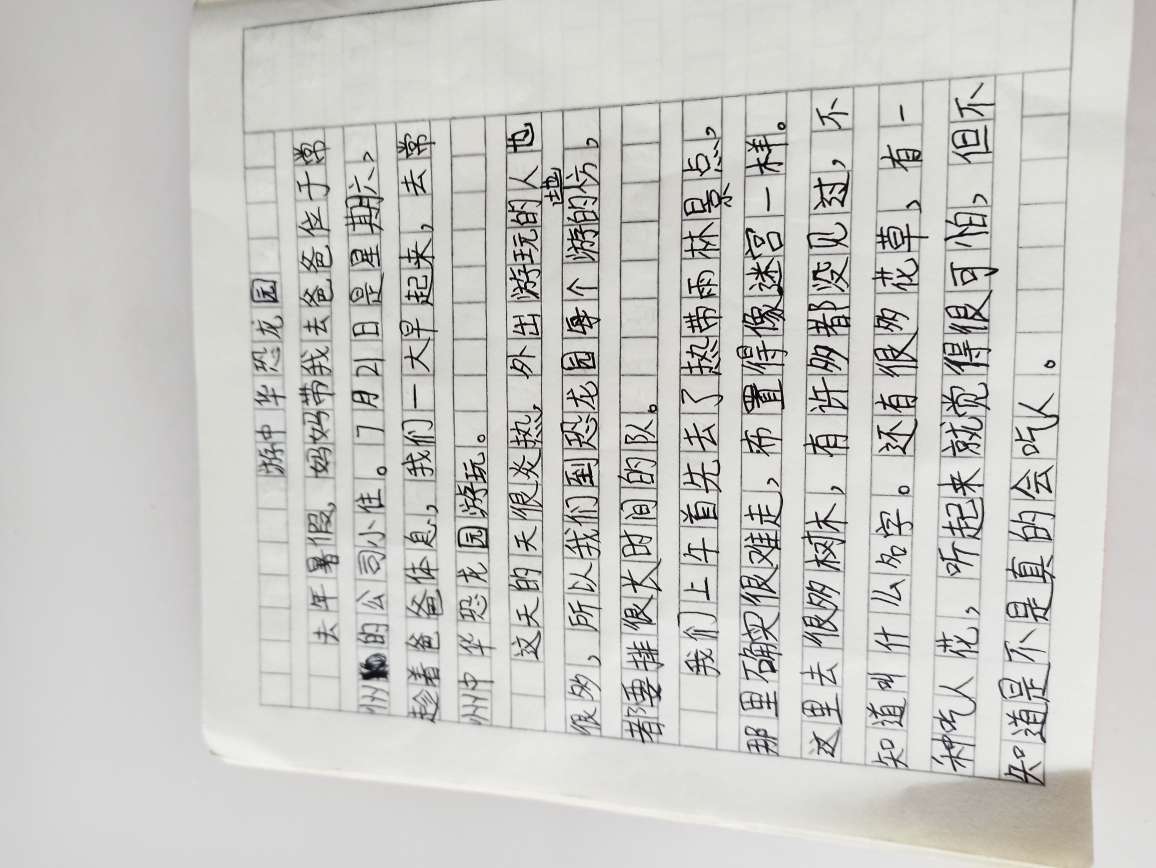 游中华恐龙园
去年暑假，妈妈带我去爸爸位于常
州的公司小住。7月21日是星期六，
趁着爸爸休息，我们一大早起来，去常
州中华恐龙园游玩。
这天的天很炎热，外出游玩的人也
很多，所以我们到恐龙园每个游的地方，
都要排很长时间的队。
我们上午首先去了热带雨林景点，
那里确实很难走，布置得像迷宫一样。
这里去很多树木，有许多都没见过，不
知道叫什么名字。还有很多花草，有一
种吃人花，听起来就觉得很可怕，但不
知道是不是真的会吃人。